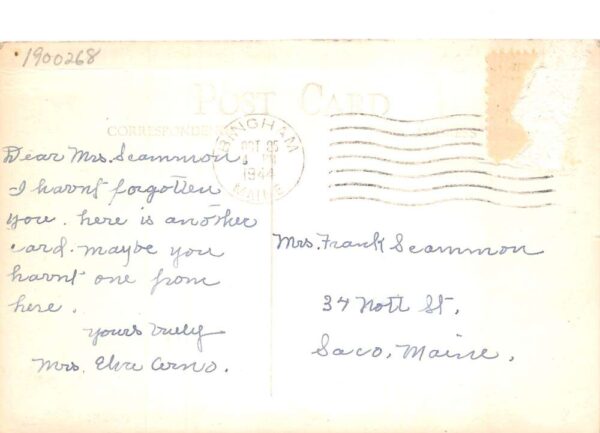 1900268
POST CARD
CORRESPONDEN
BINGHAM
OCT 25
PM
1944
MAINE
Dear Mrs. Scammon,
I havnt forgotten
you. here is another
card. maybe you
havnt one from
here.
yours truly
Mrs.
Mrs. Frank Scammon
34 Nott St.
Saco, Maine.